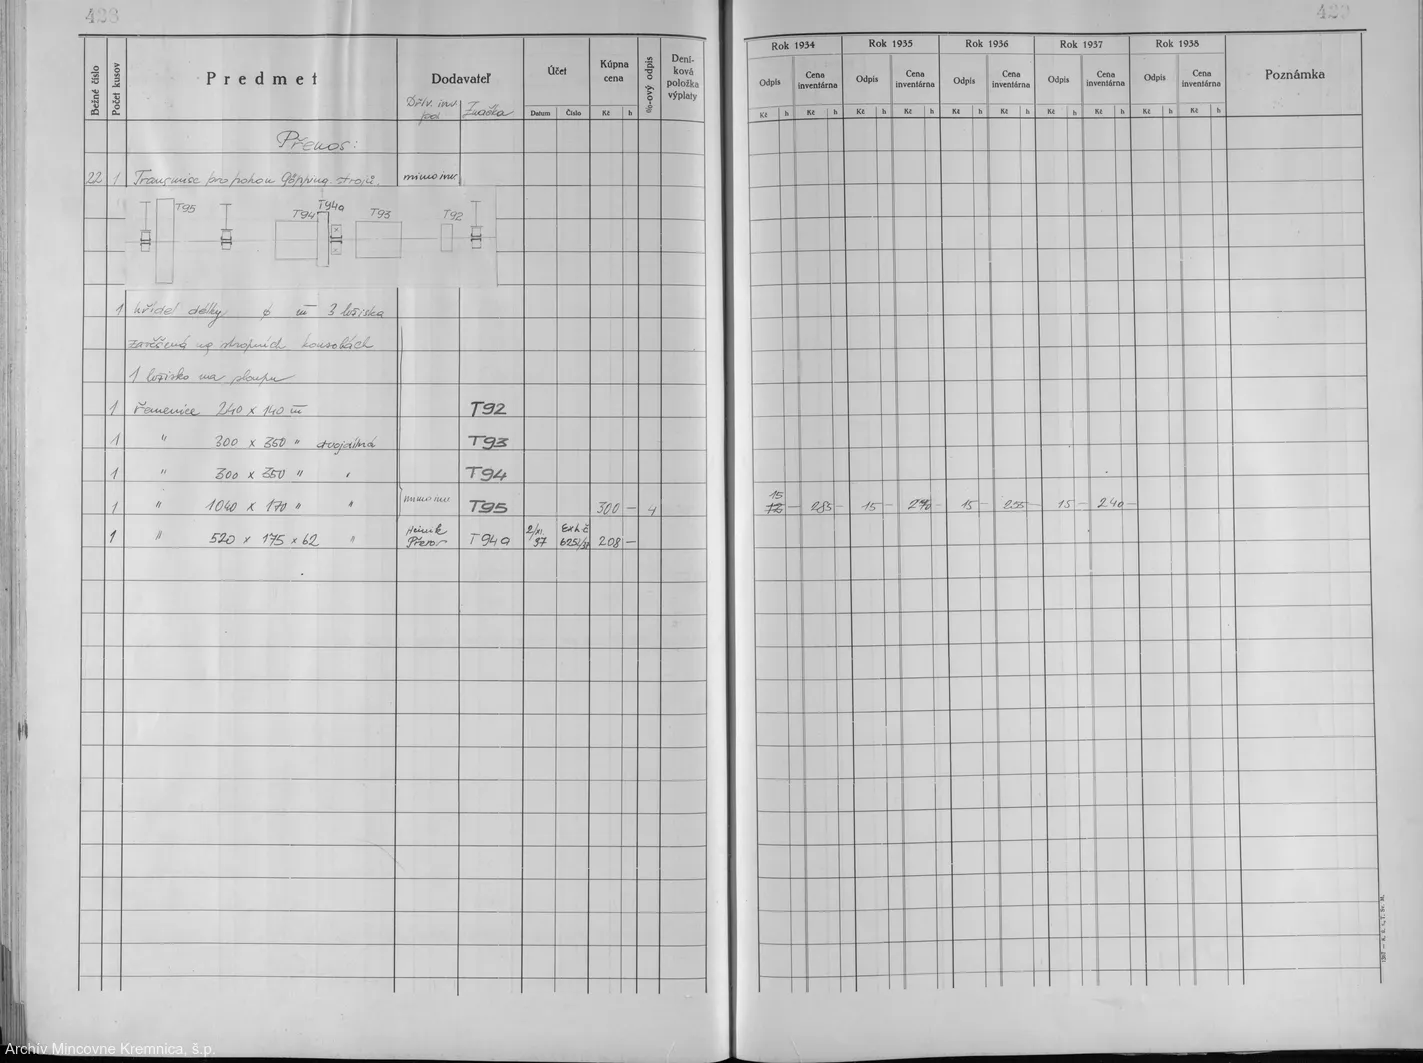 428
Bežné číslo
Počet kusov
Predmet
Dodavateľ
Účet
Kúpna cena
%-ový odpis
Deníková položka výplaty
Dřív. inv
Značka
Datum
Číslo
Kč h
Přenos:
22 1 Transmise pro pohon Göpping. strojů. mimo inv
T95 T94 T94a T93 T92
1 hřídel délky ⌀ m 3 ložiska
zavěšená na stropních konsolách
1 ložisko na sloupu
1 řemenice 240 x 140 m T92
1 " 300 x 350 " dvojdílná T93
1 " 300 x 350 " " T94
1 " 1040 x 170 " " mimo inv T95 300 — 4
1 " 520 x 175 x 62 " Přerov T94a 2/XI 37 Exh.č 208 —
429
Rok 1934
Rok 1935
Rok 1936
Rok 1937
Rok 1938
Poznámka
Odpis Cena inventárna Odpis Cena inventárna Odpis Cena inventárna Odpis Cena inventárna Odpis Cena inventárna
Kč h Kč h Kč h Kč h Kč h Kč h Kč h Kč h Kč h Kč h
15
12 — 285 — 15 — 270 — 15 — 255 — 15 — 240 —
Archív Mincovne Kremnica, š.p.